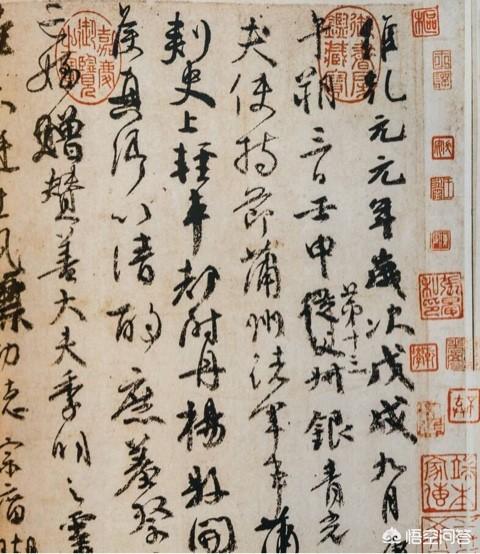 維乾元元年歲次戊戌九月庚
午朔三日壬申第十三從父銀青光
夫使持節蒲州諸軍事蒲
刺史上輕車都尉丹楊縣開
侯真卿以清酌庶羞祭
亡姪贈贊善大夫季明之靈
挺生夙標幼德宗廟瑚
御書房鑑藏寶
嘉慶御覽之寶
悟空问答